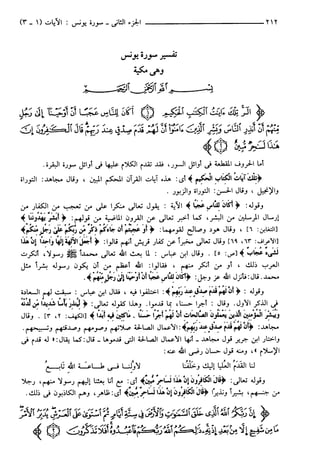 ٢١٢ الجزء الثانى - سورة يونس : الآيات (١ - ٣)
تفسير سورة يونس
وهى مكية
بسم الله الرحمن الرحيم
﴿ الٓر تِلْكَ ءَايَٰتُ ٱلْكِتَٰبِ ٱلْحَكِيمِ ١ أَكَانَ لِلنَّاسِ عَجَبًا أَنْ أَوْحَيْنَآ إِلَىٰ رَجُلٍ
مِّنْهُمْ أَنْ أَنذِرِ ٱلنَّاسَ وَبَشِّرِ ٱلَّذِينَ ءَامَنُوٓا۟ أَنَّ لَهُمْ قَدَمَ صِدْقٍ عِندَ رَبِّهِمْ قَالَ ٱلْكَٰفِرُونَ إِنَّ
هَٰذَا لَسَٰحِرٌ مُّبِينٌ ٢ ﴾
أما الحروف المقطعة فى أوائل السور، فقد تقدم الكلام عليها فى أوائل سورة البقرة.
﴿تِلْكَ آيَاتُ الْكِتَابِ الْحَكِيمِ﴾ أى: هذه آيات القرآن المحكم المبين ، وقال مجاهد: التوراة
والإنجيل ، وقال الحسن: التوراة والزبور .
وقوله: ﴿أَكَانَ لِلنَّاسِ عَجَبًا﴾ الآية : يقول تعالى منكرا على من تعجب من الكفار من
إرسال المرسلين من البشر، كما أخبر تعالى عن القرون الماضية من قولهم: ﴿أَبَشَرٌ يَهْدُونَنَا﴾
[التغابن: ٦] ، وقال هود وصالح لقومهما: ﴿أَوَ عَجِبْتُمْ أَن جَاءَكُمْ ذِكْرٌ مِّن رَّبِّكُمْ عَلَىٰ رَجُلٍ مِّنكُمْ﴾
[الأعراف: ٦٣، ٦٩] وقال تعالى مخبرا عن كفار قريش أنهم قالوا: ﴿أَجَعَلَ الآلِهَةَ إِلَٰهًا وَاحِدًا إِنَّ هَٰذَا
لَشَيْءٌ عُجَابٌ﴾ [ص: ٥] . وقال ابن عباس : لما بعث الله تعالى محمدا ﷺ رسولا، أنكرت
العرب ذلك ، أو من أنكر منهم ، فقالوا: الله أعظم من أن يكون رسوله بشرا مثل
محمد. قال: فأنزل الله عز وجل: ﴿أَكَانَ لِلنَّاسِ عَجَبًا أَنْ أَوْحَيْنَا إِلَىٰ رَجُلٍ مِّنْهُمْ﴾.
وقوله : ﴿أَنَّ لَهُمْ قَدَمَ صِدْقٍ عِندَ رَبِّهِمْ﴾: اختلفوا فيه ، فقال ابن عباس : سبقت لهم السعادة
فى الذكر الأول. وقال : أجرا حسنا، بما قدموا. وهذا كقوله تعالى: ﴿لِّيُنذِرَ بَأْسًا شَدِيدًا مِّن لَّدُنْهُ
وَيُبَشِّرَ الْمُؤْمِنِينَ الَّذِينَ يَعْمَلُونَ الصَّالِحَاتِ أَنَّ لَهُمْ أَجْرًا حَسَنًا . مَاكِثِينَ فِيهِ أَبَدًا﴾ [الكهف: ٢، ٣] . وقال
مجاهد: ﴿أَنَّ لَهُمْ قَدَمَ صِدْقٍ عِندَ رَبِّهِمْ﴾: الأعمال الصالحة صلاتهم وصومهم وصدقتهم وتسبيحهم.
واختار ابن جرير قول مجاهد ـ أنها الأعمال الصالحة التى قدموها ـ قال: كما يقال: «له قدم فى
الإسلام» ، ومنه قول حسان رضى الله عنه:
لنا القَدَمُ العُليا إليك وخَلْفُنا لأولِنا فى طاعة الله تابعُ
وقوله تعالى: ﴿قَالَ الْكَافِرُونَ إِنَّ هَٰذَا لَسَاحِرٌ مُّبِينٌ﴾ أى: مع أنا بعثنا إليهم رسولا منهم، رجلا
من جنسهم، بشيرا ونذيرا ﴿قَالَ الْكَافِرُونَ إِنَّ هَٰذَا لَسَاحِرٌ مُّبِينٌ﴾ أى: ظاهر، وهم الكاذبون فى ذلك.
﴿ إِنَّ رَبَّكُمُ ٱللَّهُ ٱلَّذِى خَلَقَ ٱلسَّمَٰوَٰتِ وَٱلْأَرْضَ فِى سِتَّةِ أَيَّامٍ ثُمَّ ٱسْتَوَىٰ عَلَى ٱلْعَرْشِ يُدَبِّرُ ٱلْأَمْرَ
مَا مِن شَفِيعٍ إِلَّا مِنۢ بَعْدِ إِذْنِهِۦ ذَٰلِكُمُ ٱللَّهُ رَبُّكُمْ فَٱعْبُدُوهُ أَفَلَا تَذَكَّرُونَ ٣ ﴾